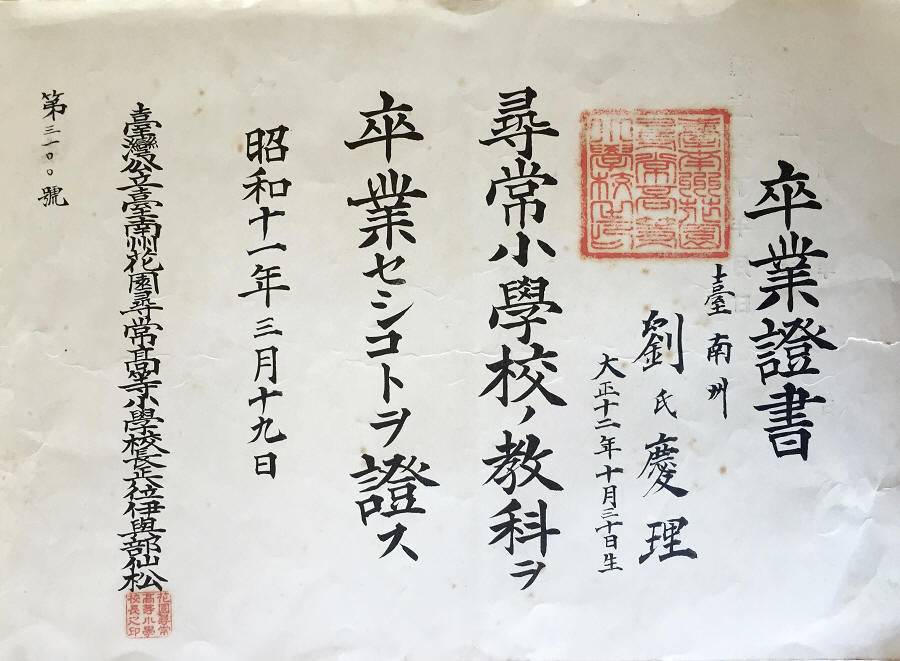 卒業證書
臺南州
劉氏慶理
大正十二年十月三十日生
尋常小學校ノ教科ヲ
卒業セシコトヲ證ス
昭和十一年三月十九日
臺灣公立臺南州花園尋常高等小學校長正七位伊與部仙松
第三一〇〇號
臺南州花園
尋常高等
小學校印
花園尋常
高等小學
校長之印